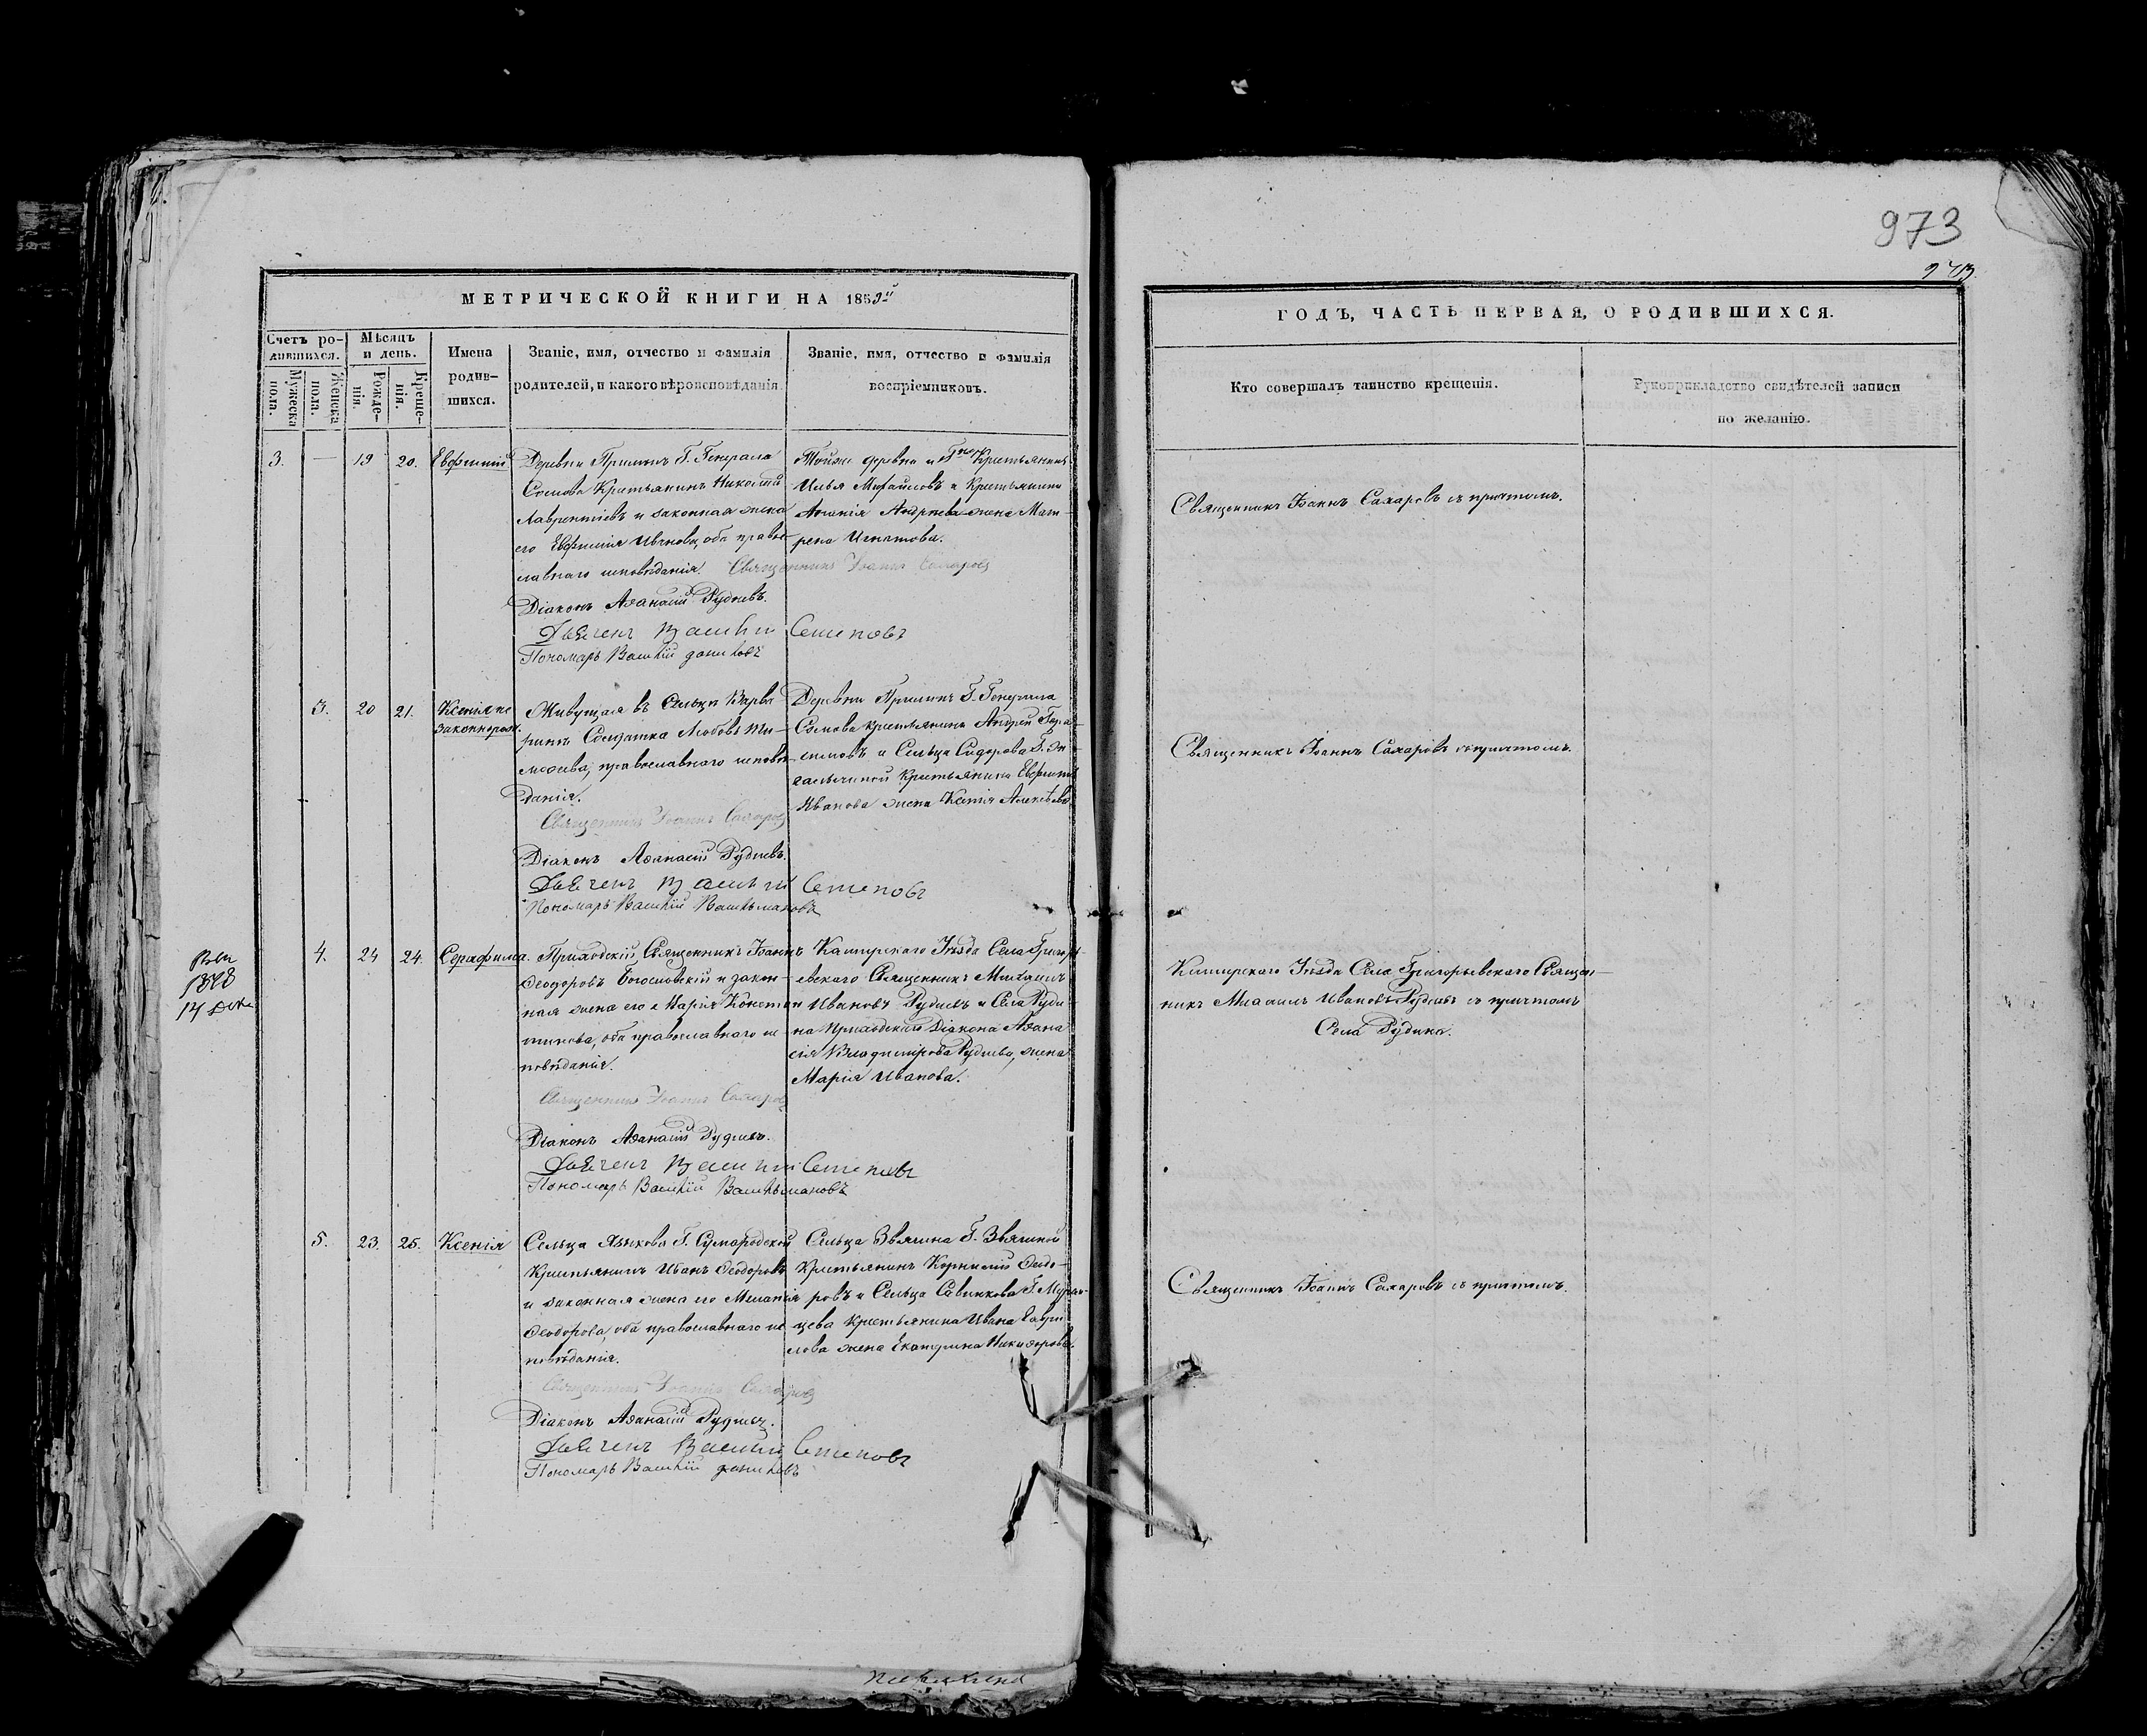 973
МЕТРИЧЕСКОЙ КНИГИ НА 1859й
ГОДЪ, ЧАСТЬ ПЕРВАЯ, О РОДИВШИХСЯ.
Счетъ ро-
дившихся.
Мужеска
пола.
Женска
пола.
Мѣсяцъ
и день.
Рожде-
нія.
Креще-
нія.
Имена
родив-
шихся.
Званіе, имя, отчество и фамилія
родителей, и какого вѣроисповѣданія.
Званіе, имя, отчество и фамилія
воспріемниковъ.
Кто совершалъ таинство крещенія.
Рукоприкладство свидѣтелей записи
по желанію.
3. — 19 20. Евфимій
Деревни Г. Генерала
Сомова Крестьянинъ Николай
Лаврентіевъ и законная жена
его Евфимія Иванова, оба право-
славнаго исповѣданія. Священникъ Іоаннъ Сахаровъ
Діаконъ Аѳанасій Рудневъ.
Дьячекъ Василій Семеновъ
Пономарь Василій
Тойже деревни и Гна Крестьянинъ
Илья Михайловъ и Крестьянина
Ананія Андреева жена Мат-
рена Игнатова.
Священникъ Іоаннъ Сахаровъ съ причтомъ.
3. 20 21. Ксенія не
законнорож.
Живущая въ Сельцѣ Варва
ринѣ Солдатка Любовь Ти-
моѳеева, православнаго исповѣ-
данія.
Священникъ Іоаннъ Сахаровъ
Діаконъ Аѳанасій Рудневъ.
Дьячекъ Василій Семеновъ
Пономарь Василій
Деревни Г. Генерала
Сомова крестьянинъ Андрей Гера-
симовъ и Сельца Сидорова Г.
крестьянина Евфима
Иванова жена Ксенія Алексѣева.
Священникъ Іоаннъ Сахаровъ съ причтомъ.
1898
4. 24 24. Серафима.
Приходскій Священникъ Іоаннъ
Ѳеодоровъ Богословскій и закон-
ная жена его Марія Констан
тинова, оба православнаго ис
повѣданія.
Священникъ Іоаннъ Сахаровъ
Діаконъ Аѳанасій Рудневъ.
Дьячекъ Василій Семеновъ
Пономарь Василій
Каширскаго Уѣзда Села Григорь-
евскаго Священникъ Михаилъ
Ивановъ Рудневъ и Села Руди-
на Приходскій Діакона Аѳана
сія Владимірова Руднева, жена
Марія Иванова.
Каширскаго Уѣзда Села Григорьевскаго Священ-
никъ Михаилъ Ивановъ Рудневъ съ причтомъ
Села Рудина.
5. 23. 25. Ксенія
Сельца Языкова Г. Сумароцкой
Крестьянинъ Иванъ Ѳеодоровъ
и законная жена его Меланія
Ѳеодорова, оба православнаго ис
повѣданія.
Священникъ Іоаннъ Сахаровъ
Діаконъ Аѳанасій Рудневъ.
Дьячекъ Василій Семеновъ
Пономарь Василій
Сельца Звягина Г. Звягиной
Крестьянинъ Корнилій Ѳедо-
ровъ и Сельца Савинкова Г.
цева Крестьянина Ивана Гаври
лова жена Екатерина Никифорова.
Священникъ Іоаннъ Сахаровъ съ причтомъ.